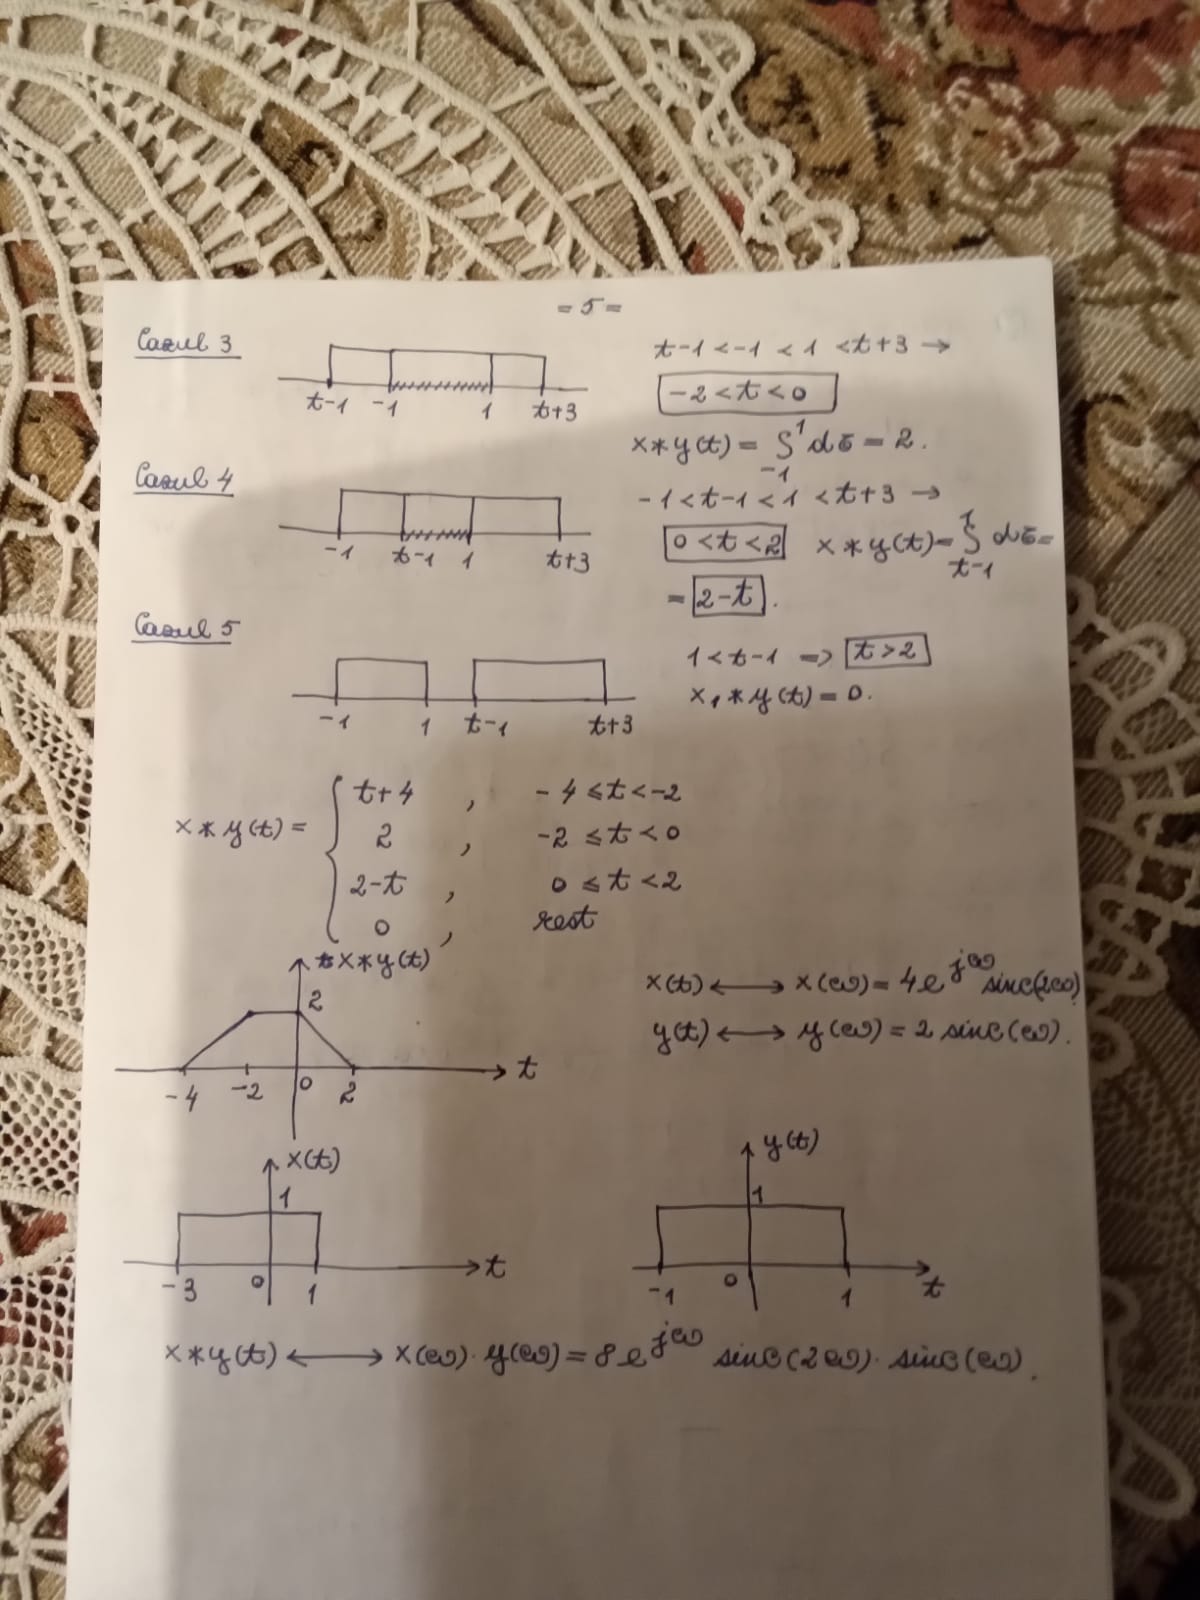 = 5 =
Cazul 3
t-1 -1 1 t+3
t-1 < -1 < 1 < t+3 →
-2 < t < 0
x*y(t) = ∫₋₁¹ dτ = 2.
Cazul 4
-1 t-1 1 t+3
-1 < t-1 < 1 < t+3 →
0 < t < 2 x*y(t) = ∫ₜ₋₁¹ dτ =
= 2-t.
Cazul 5
-1 1 t-1 t+3
1 < t-1 => t > 2
x₁*y(t) = 0.
x*y(t) = { t+4 , -4 ≤ t < -2
2 , -2 ≤ t < 0
2-t , 0 ≤ t < 2
0 , rest
x*y(t)
2
-4 -2 0 2 t
x(t) ⟷ x(ω) = 4e^{jω} sinc(2ω)
y(t) ⟷ y(ω) = 2 sinc(ω).
x(t)
1
-3 0 1 t
y(t)
1
-1 0 1 t
x*y(t) ⟷ x(ω)·y(ω) = 8e^{jω} sinc(2ω)·sinc(ω).